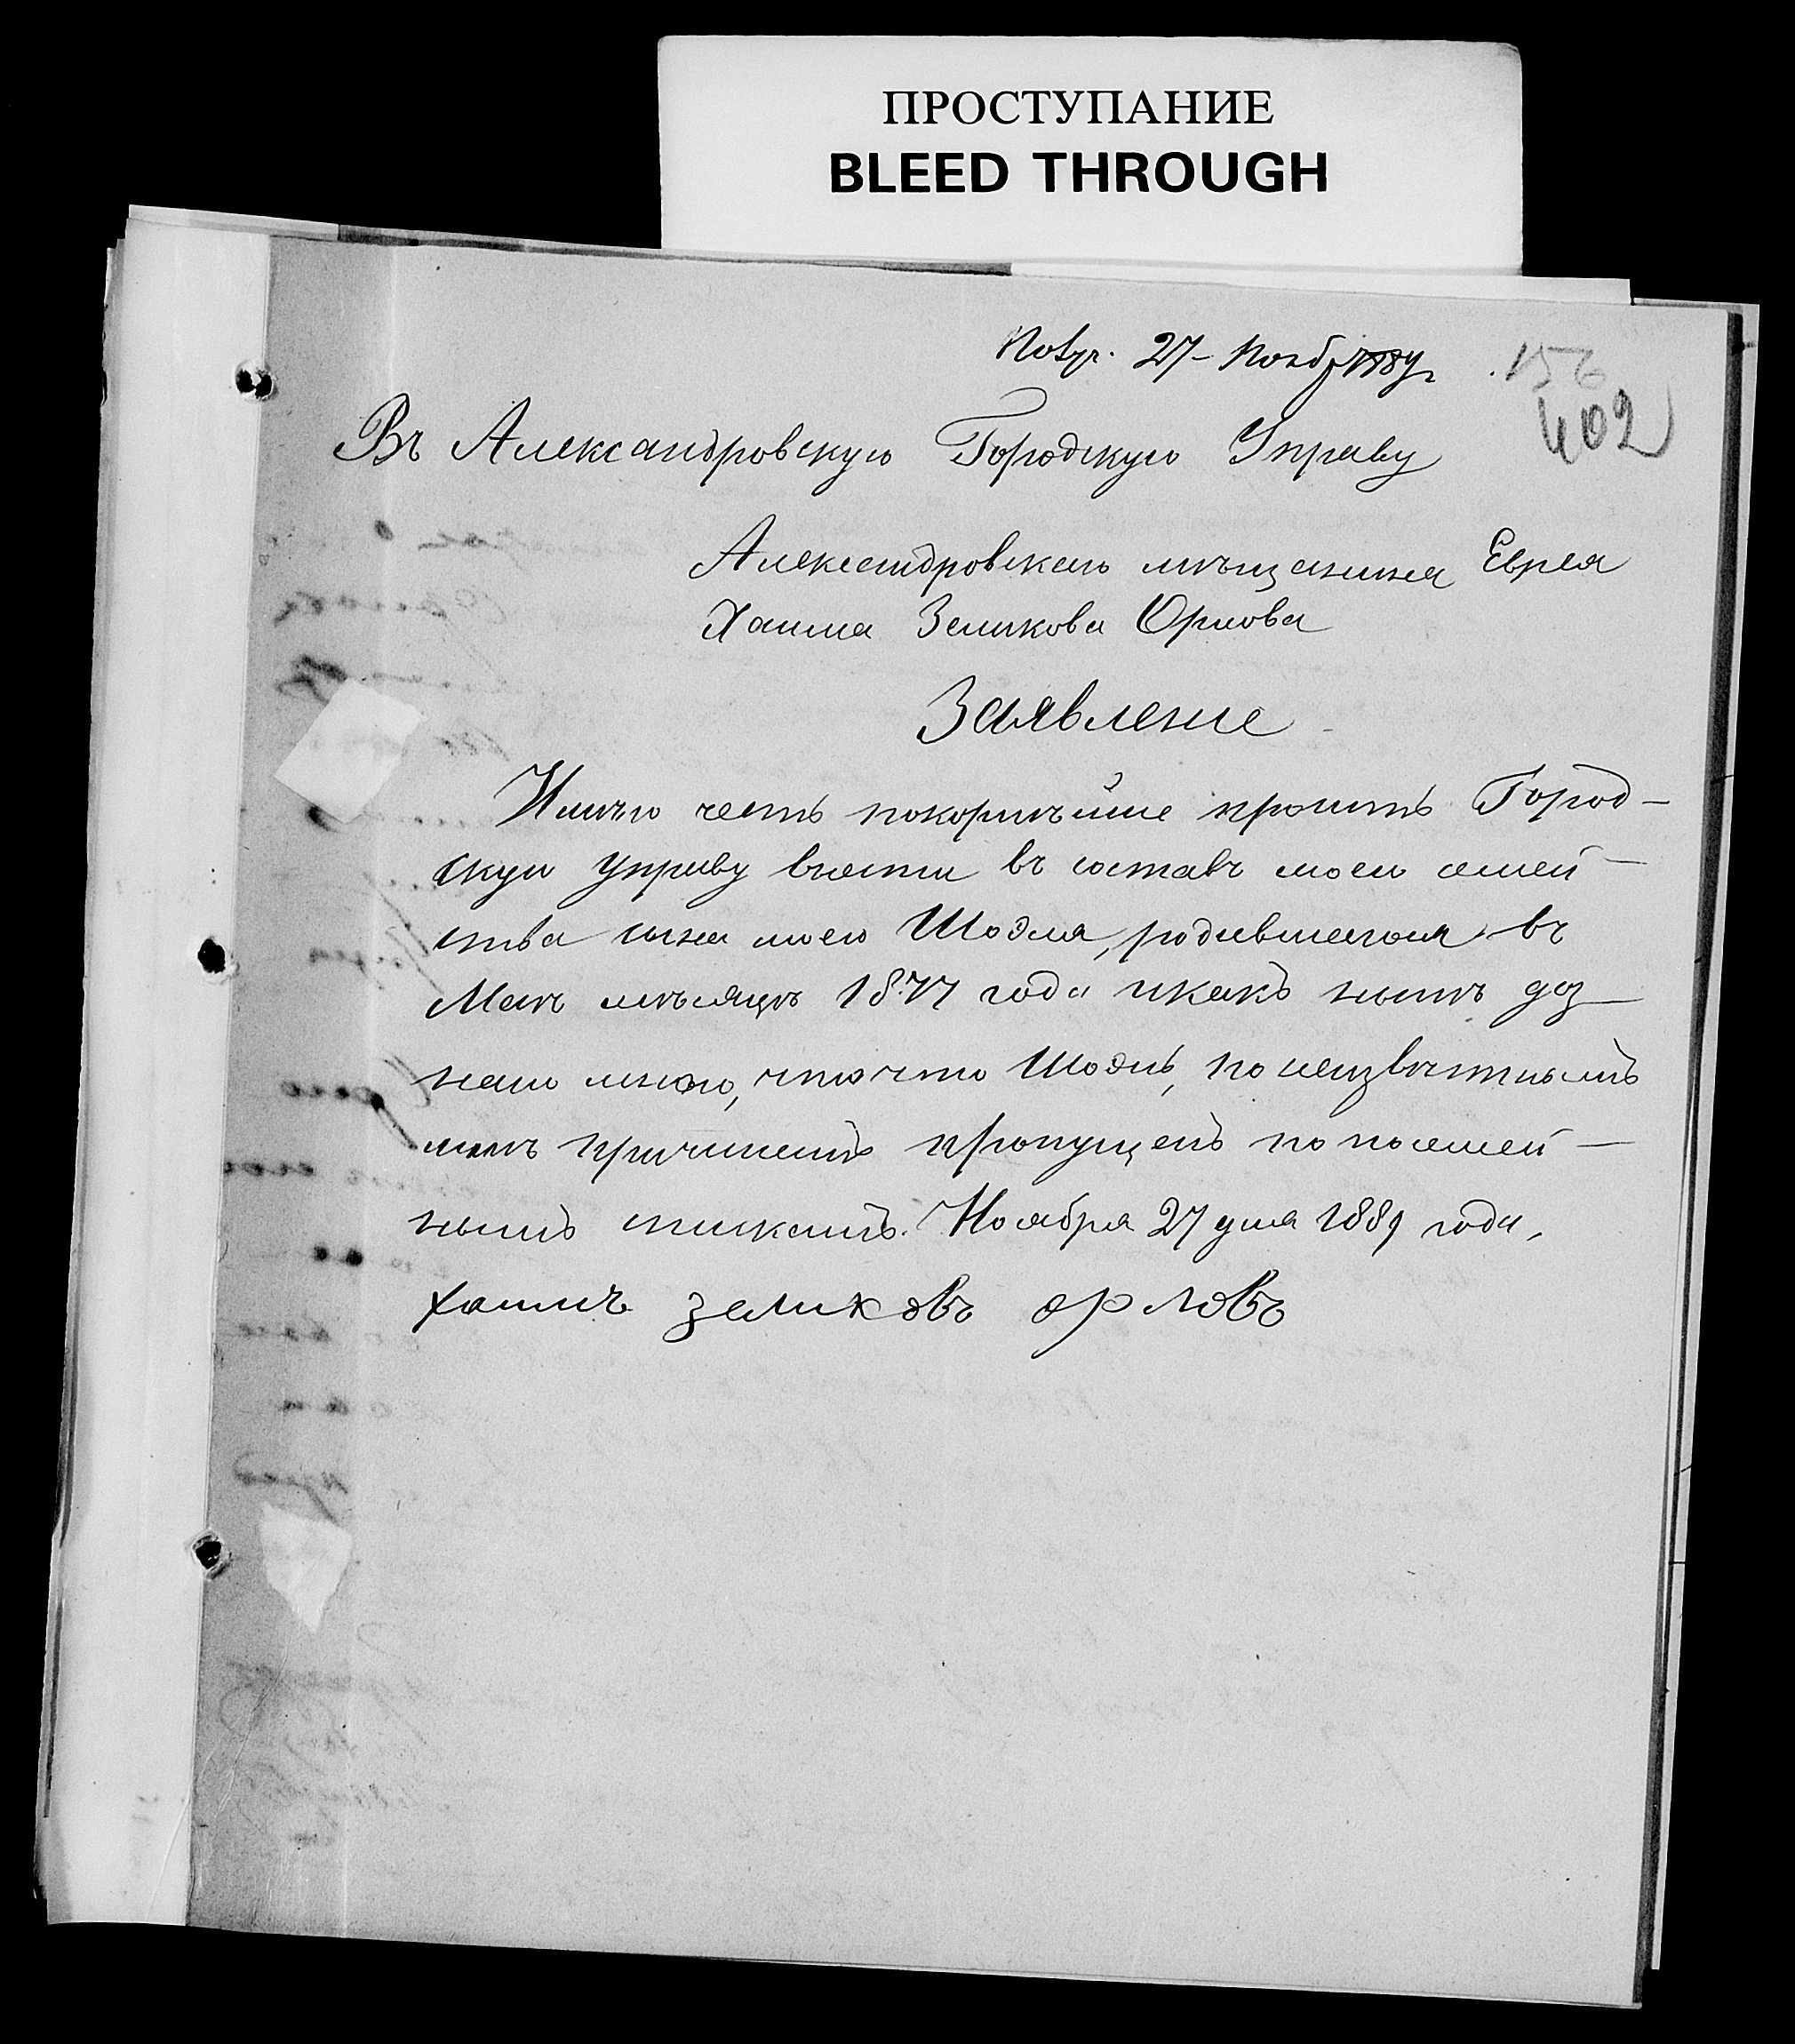 ПРОСТУПАНИЕ
BLEED THROUGH
Получ. 27 - Нояб. 1889 г.
156
402
Въ Александровскую Городскую Управу
Александровскаго мѣщанина Еврея
Хаима Зеликова Орлова
Заявление
Имѣю честь покорнѣйше просить Город-
скую управу внести въ составъ моего семей-
ства сына моего Шоэля, родившегося въ
Маѣ мѣсяцѣ 1877 года и какъ нынѣ доз-
нано мною, что что Шоэль, по неизвѣстнымъ
мнѣ причинамъ пропущенъ по посемей-
нымъ спискамъ. Ноября 27 дня 1889 года.
хаимъ зеликовъ орловъ